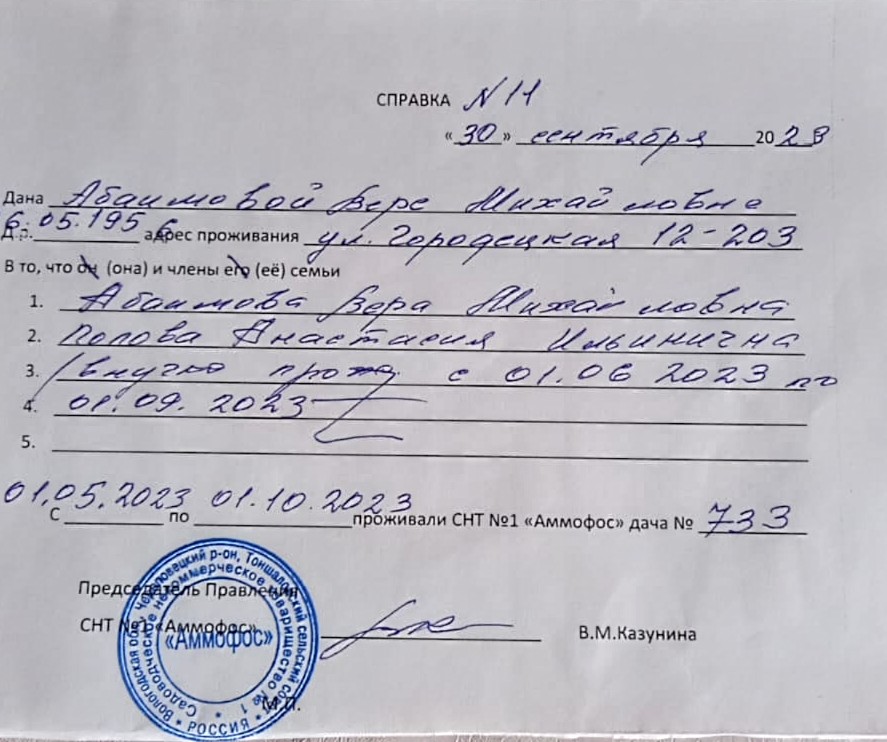 СПРАВКА N 11
« 30 » сентября 2023
Дана Абаимовой Вере Михайловне
Д.р. 6.05.1956 адрес проживания ул. Городецкая 12-203
В то, что он (она) и члены его (её) семьи
1. Абаимова Вера Михайловна
2. Попова Анастасия Ильинична
3. (внучка прож. с 01.06 2023 по
4. 01.09. 2023
5.
01.05.2023 01.10.2023
С по проживали СНТ №1 «Аммофос» дача № 733
Председатель Правления
СНТ №1 «Аммофос»
В.М.Казунина
М.П.
Вологодская обл. Череповецкий р-он, Тоншаловский сельский сов
Садоводческое некоммерческое товарищество № 1
«Аммофос»
* РОССИЯ *